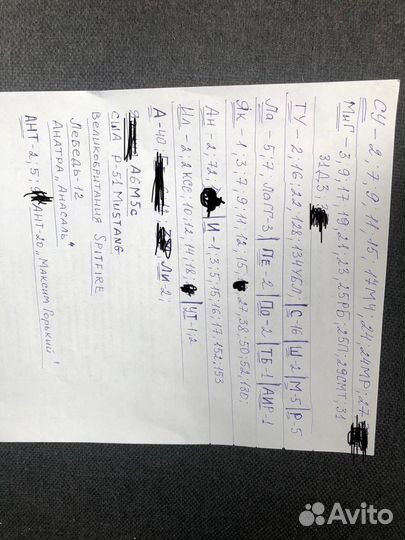 СУ – 2, 7, 9, 11, 15, 17М4, 24, 24МР; 27
МиГ – 3, 9, 17, 19, 21, 23, 25РБ, 25П; 29СМТ; 31
31ДЗ;
ТУ – 2, 16, 22, 128, 134УБЛ | С-16 | Ш-2 | М-5 | Р-5
Ла – 5; 7, ЛаГГ-3 | Пе-2 | По-2 | ТБ-1 | АИР-1
Як – 1; 3; 7, 9, 11, 12, 15, 27, 38, 50, 52, 130;
Ан – 2, 72, И-1; 3; 5, 15, 16, 17, 152, 153
Ил – 2, 2КСС, 10, 12, 14, 18, УТ-1, 2
А-40; ЛИ-2;
А6М5с
США Р-51 MUSTANG
ВЕЛИКОБРИТАНИЯ SPITFIRE
ЛЕБЕДЬ-12
АНАТРА „АНАСАЛЬ"
АНТ-2, 5; АНТ-20 „МАКСИМ ГОРЬКИЙ"
Avito